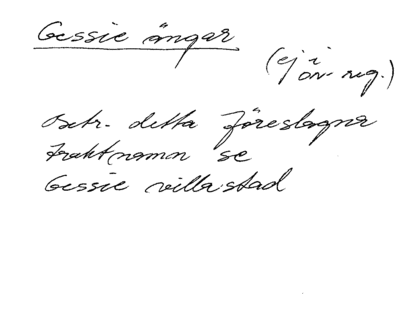 Gessie ängar
(ej i
on-reg.)
Betr. detta föreslagna
traktnamn se
Gessie villastad